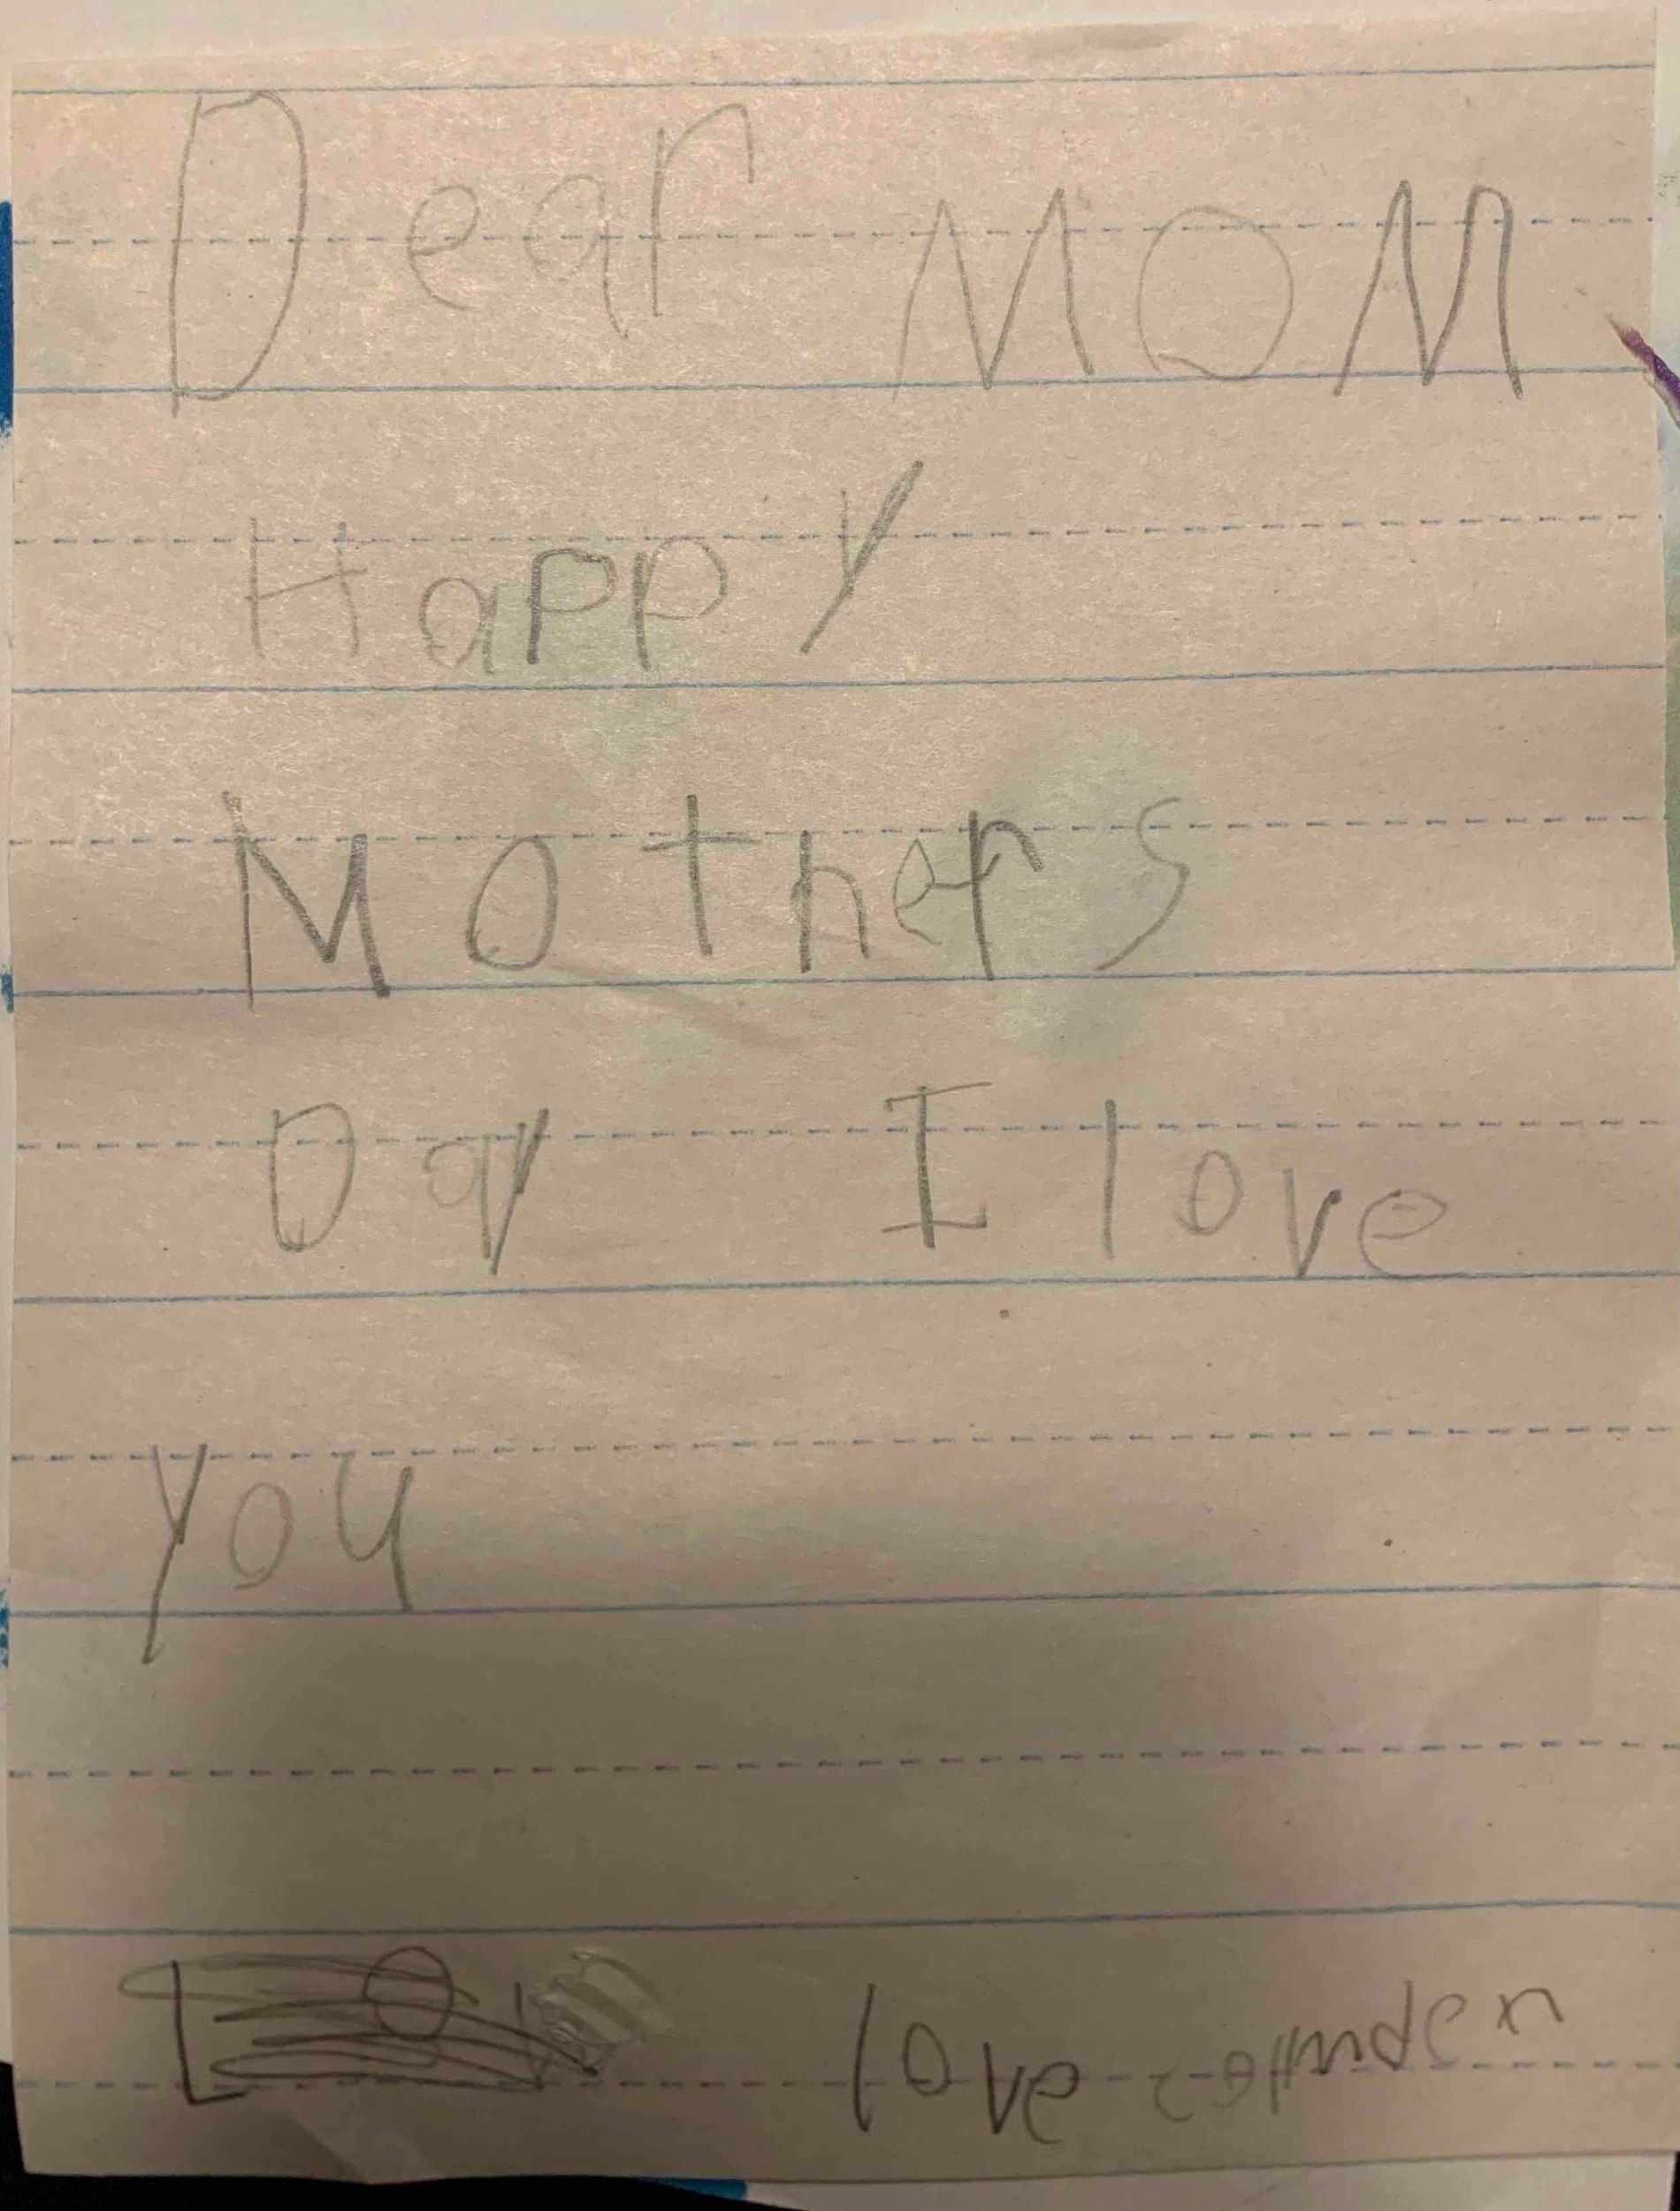 Dear MOM
Happy
Mothers
Day I love
you
love